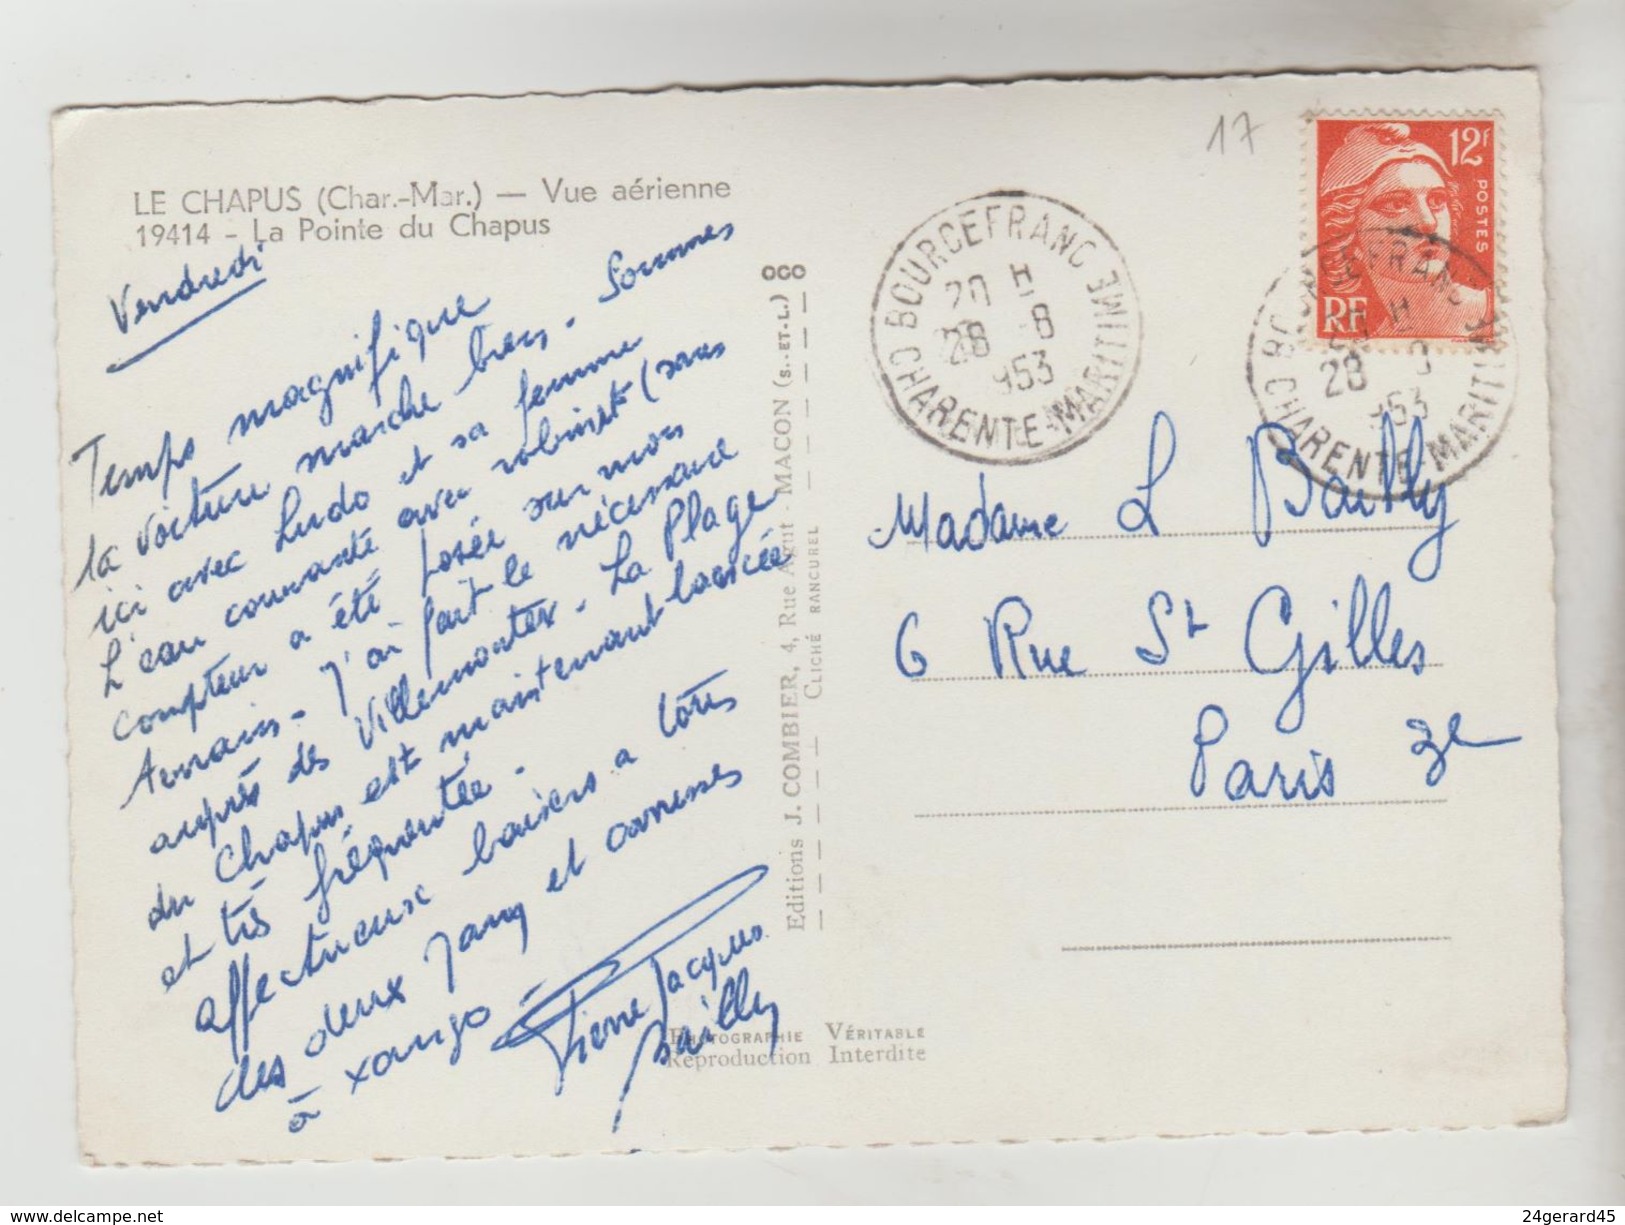 LE CHAPUS (Char.-Mar.) — Vue aérienne
19414 - La Pointe du Chapus
Vendredi
Temps magnifique
la voiture marche bien - Sommes
ici avec Ludo et sa femme
L'eau courante avec robinet (sans
compteur a été posée sur mon
terrain - J'ai fait le nécessaire
auprès des Villemontex - La Plage
du Chapus est maintenant lancée
et très fréquentée -
affectueux baisers a tôtis
des deux Jany et caresses
à xango -
Pierre Jacques
Bailly
OGO
Editions J. COMBIER, 4, Rue Agut - MACON (S.-ET-L.)
CLICHÉ RANCUREL
PHOTOGRAPHIE VÉRITABLE
Reproduction Interdite
17
12F
POSTES
RF
BOURCEFRANC
20 H
28 -8
953
CHARENTE-MARITIME
BOURCEFRANC
28
953
CHARENTE-MARITIME
Madame L Bailly
6 Rue St Gilles
Paris 3e
www.delcampe.net
24gerard45